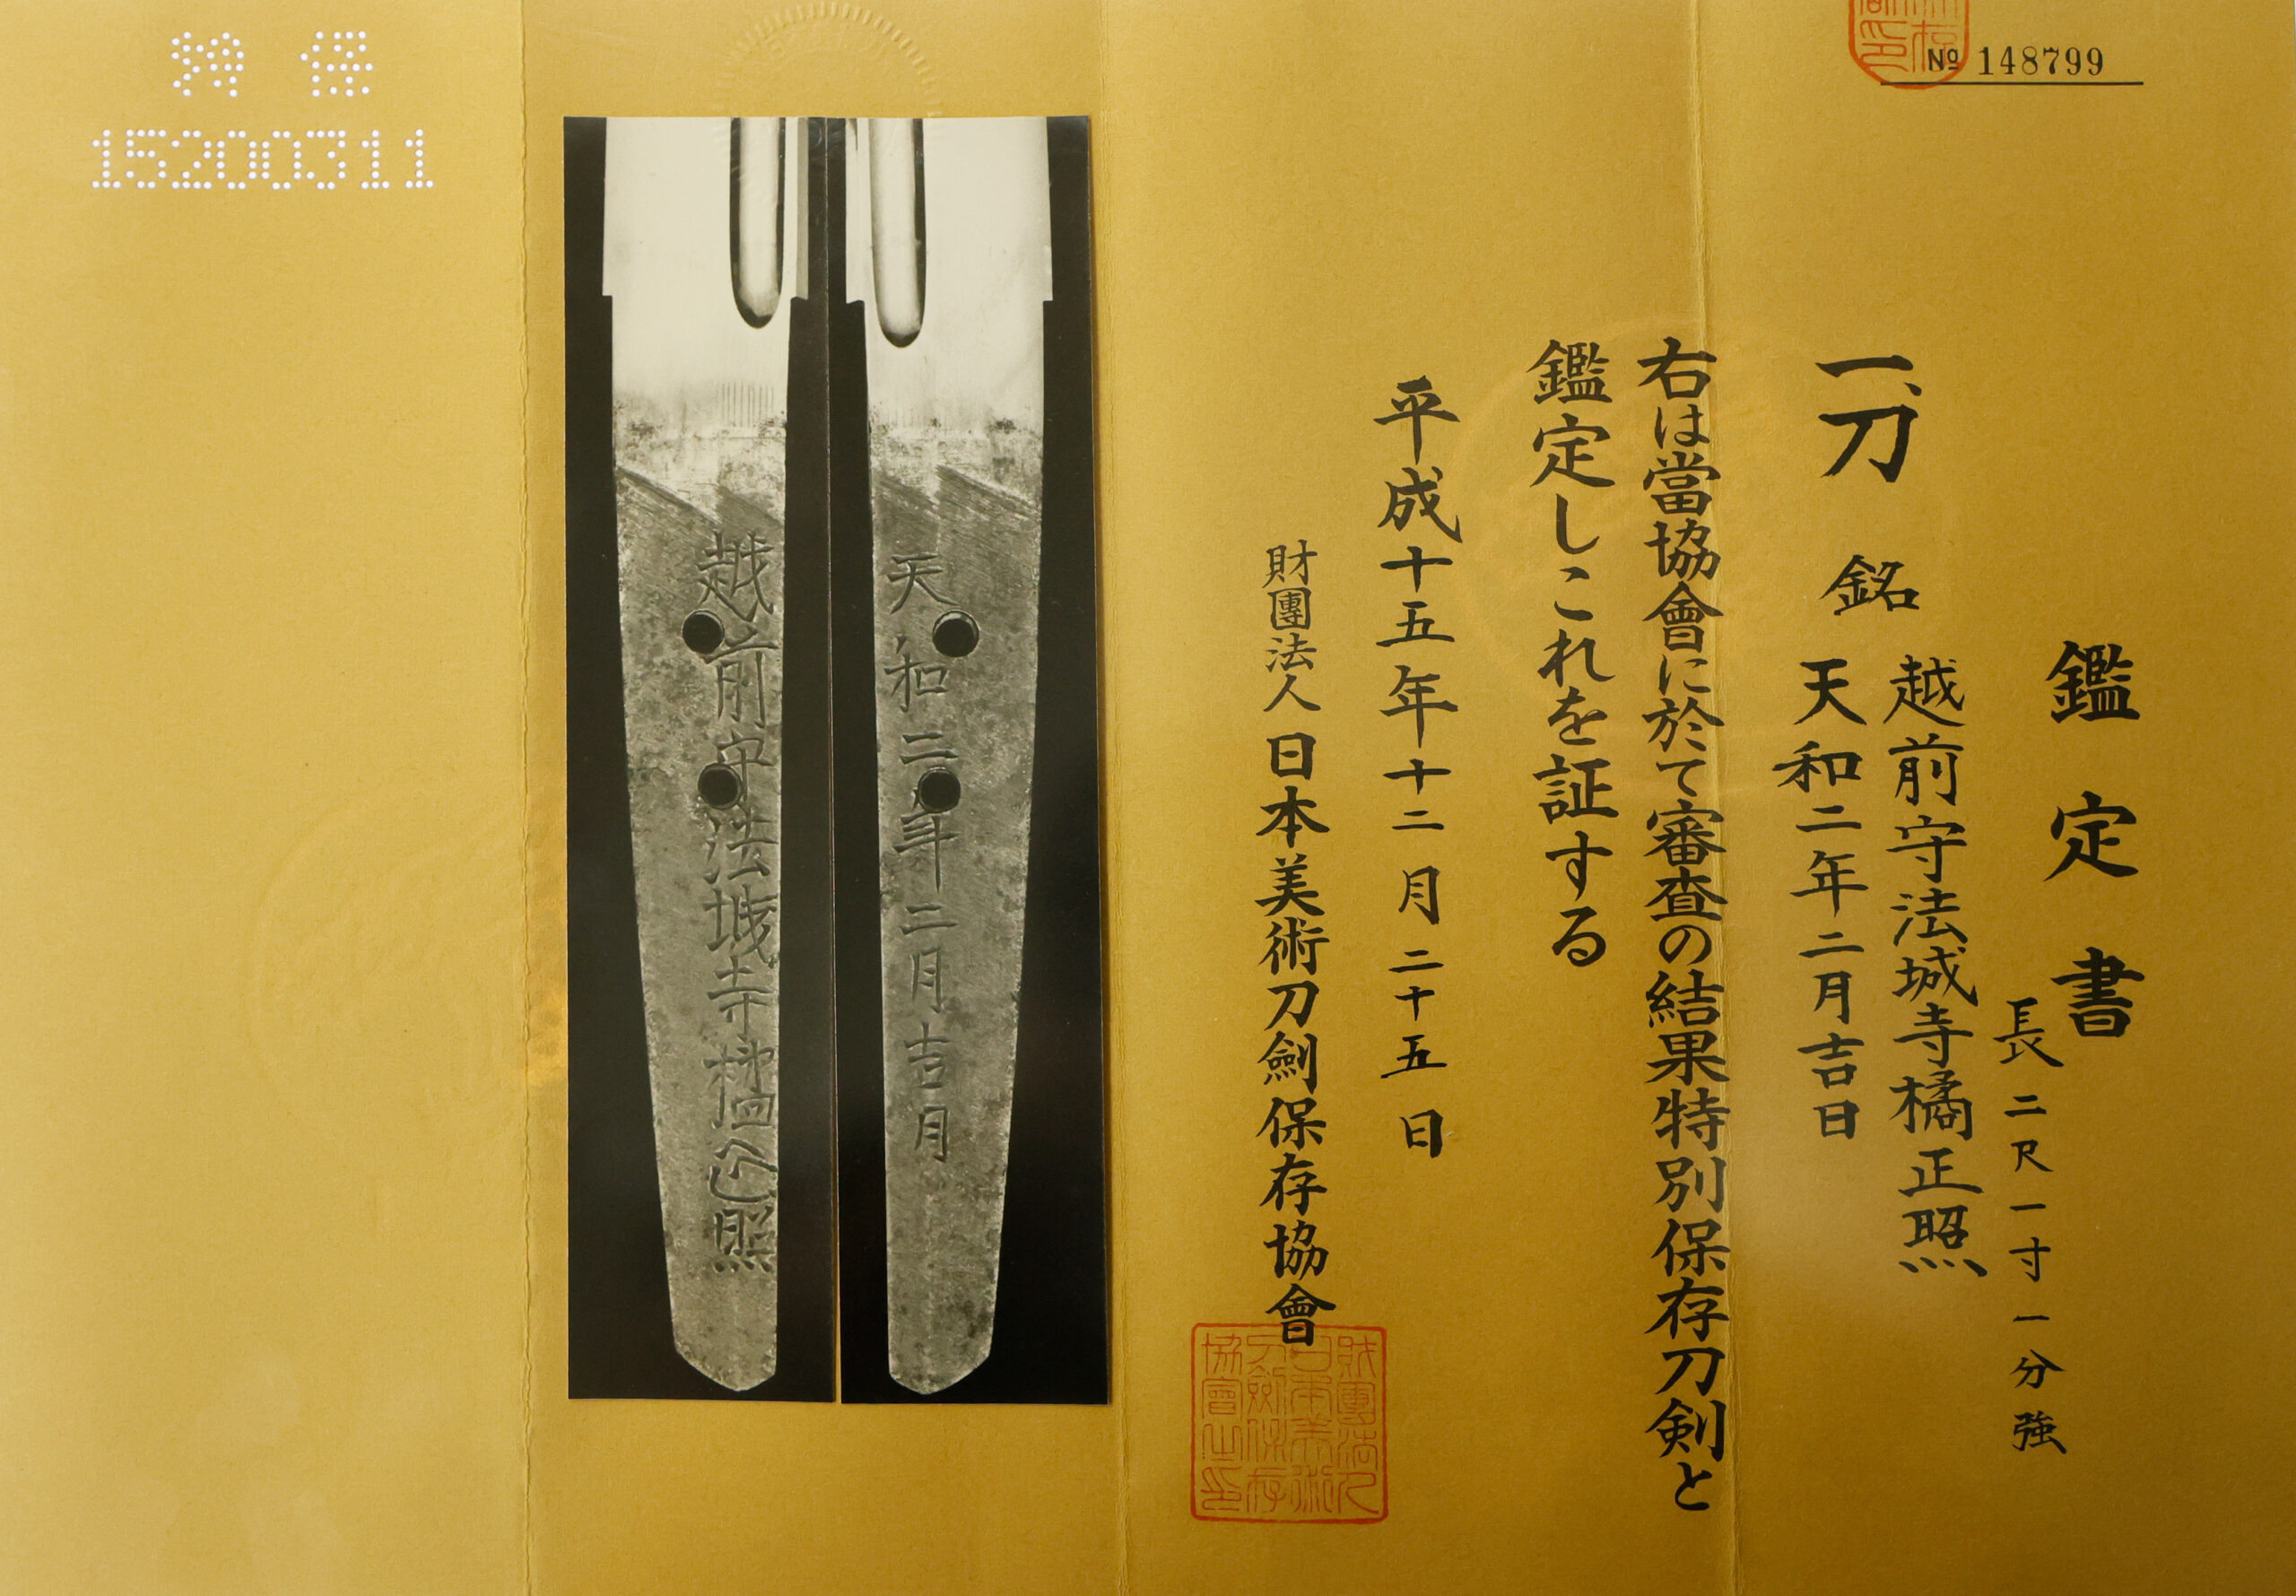 № 148799
鑑定書
長二尺一寸一分強
一、刀 銘 越前守法城寺橘正照
天和二年二月吉日
右は當協會に於て審査の結果特別保存刀剣と
鑑定しこれを証する
平成十五年十二月二十五日
財團法人日本美術刀劍保存協會
財團法人日本美術刀劍保存協會之印
天和二年二月吉日
越前守法城寺橘正照
特保
15200311